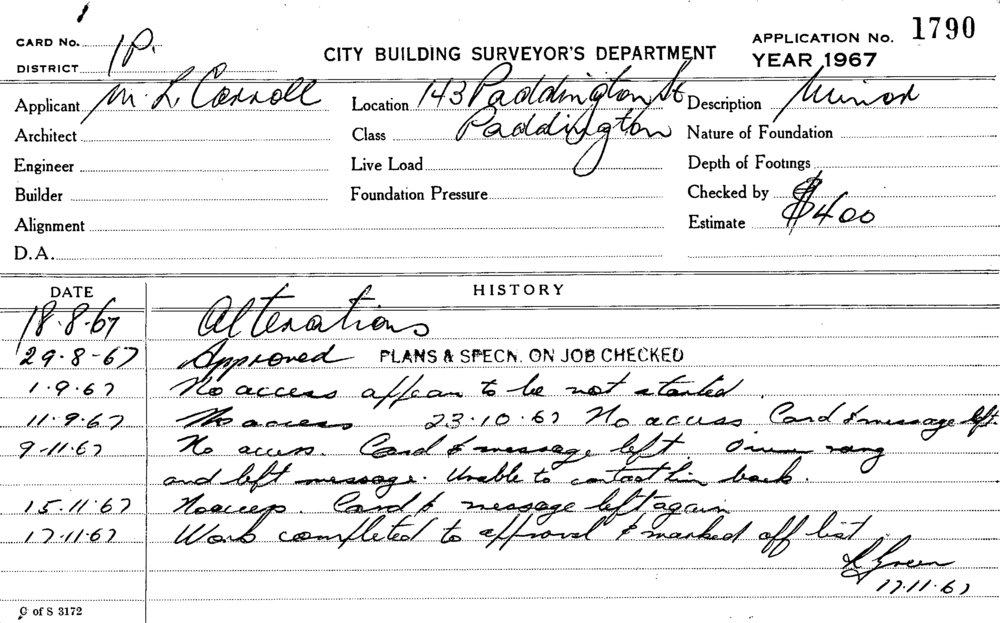 CARD No. 1P.
DISTRICT
CITY BUILDING SURVEYOR'S DEPARTMENT
APPLICATION No. 1790
YEAR 1967
Applicant M. L. Carroll
Location 143 Paddington St
Description Minor
Architect
Class Paddington
Nature of Foundation
Engineer
Live Load
Depth of Footings
Builder
Foundation Pressure
Checked by
Alignment
Estimate $400
D.A.
DATE HISTORY
18.8.67 Alterations
29.8-67 Approved PLANS & SPECN. ON JOB CHECKED
1.9.67 No access appears to be not started.
11.9.67 No access 23.10.67 No access Card & message left.
9-11.67 No access. Card & message left. Owner rang
and left message. Unable to contact him back.
15.11.67 No access. Card & message left again
17.11.67 Work completed to approval & marked off list.
L Green
17.11.67
C of S 3172